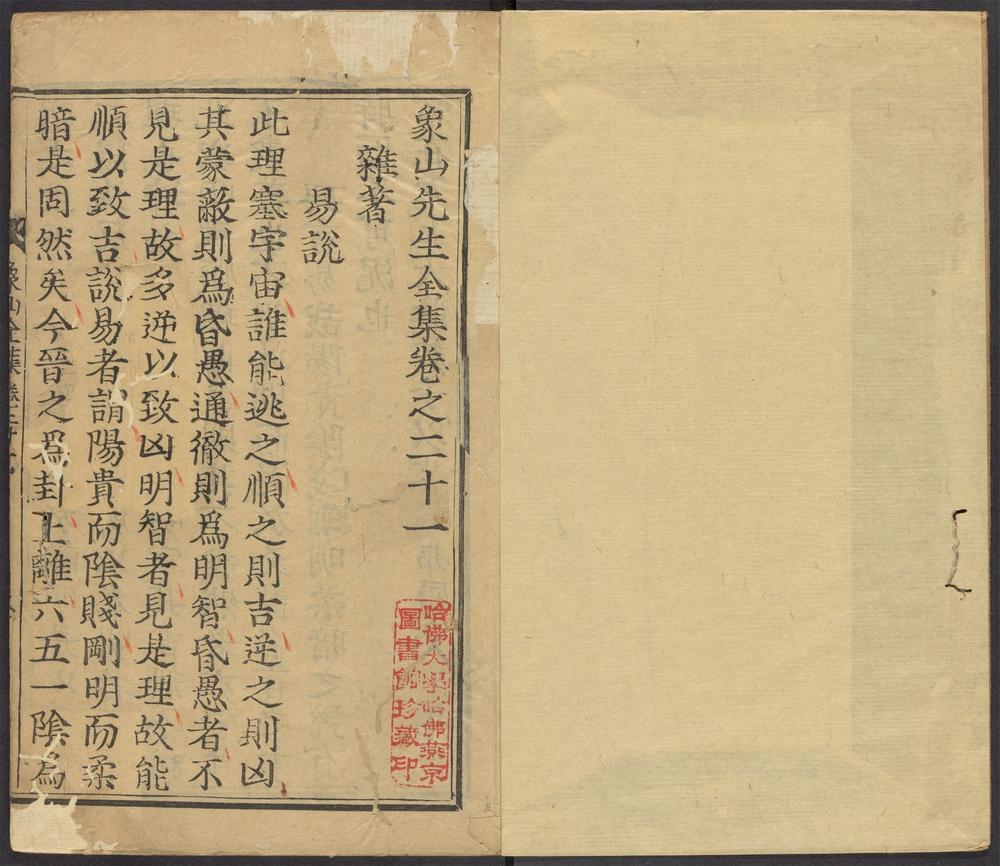 象山先生全集卷之二十一
雜著
易說
此理塞宇宙誰能逃之順之則吉逆之則凶
其蒙蔽則爲昏愚通徹則爲明智昏愚者不
見是理故多逆以致凶明智者見是理故能
順以致吉說易者謂陽貴而陰賤剛明而柔
暗是固然矣今晉之爲卦上離六五一陰爲
象山全集 卷二十一
哈佛大學哈佛燕京
圖書館珍藏印